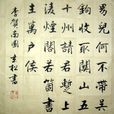 男兒何不帶吴
鈎收取關山五
十州請君暫上
凌煙閣若箇書
生萬户侯
李賀南園 吉松書